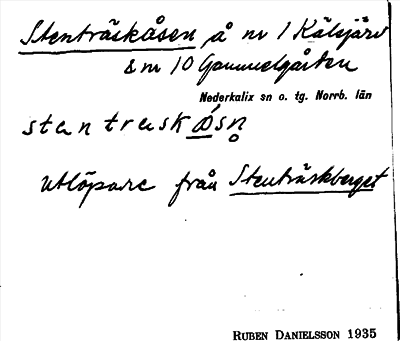 Stenträskåsen å nr 1 Kälsjärv
& nr 10 Gammelgården
Nederkalix sn o. tg. Norrb. län
stentrask ǻsn̥
utlöpare från Stenträskberget
RUBEN DANIELSSON 1935